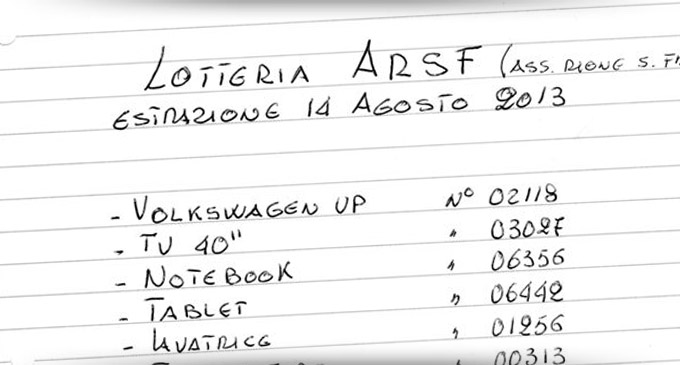 LOTTERIA ARSF (ASS. RIONE S. F
ESTRAZIONE 14 AGOSTO 2013
- VOLKSWAGEN UP N° 02118
- TV 40" " 03027
- NOTEBOOK " 06356
- TABLET " 06442
- LAVATRICE " 01256
" 00313